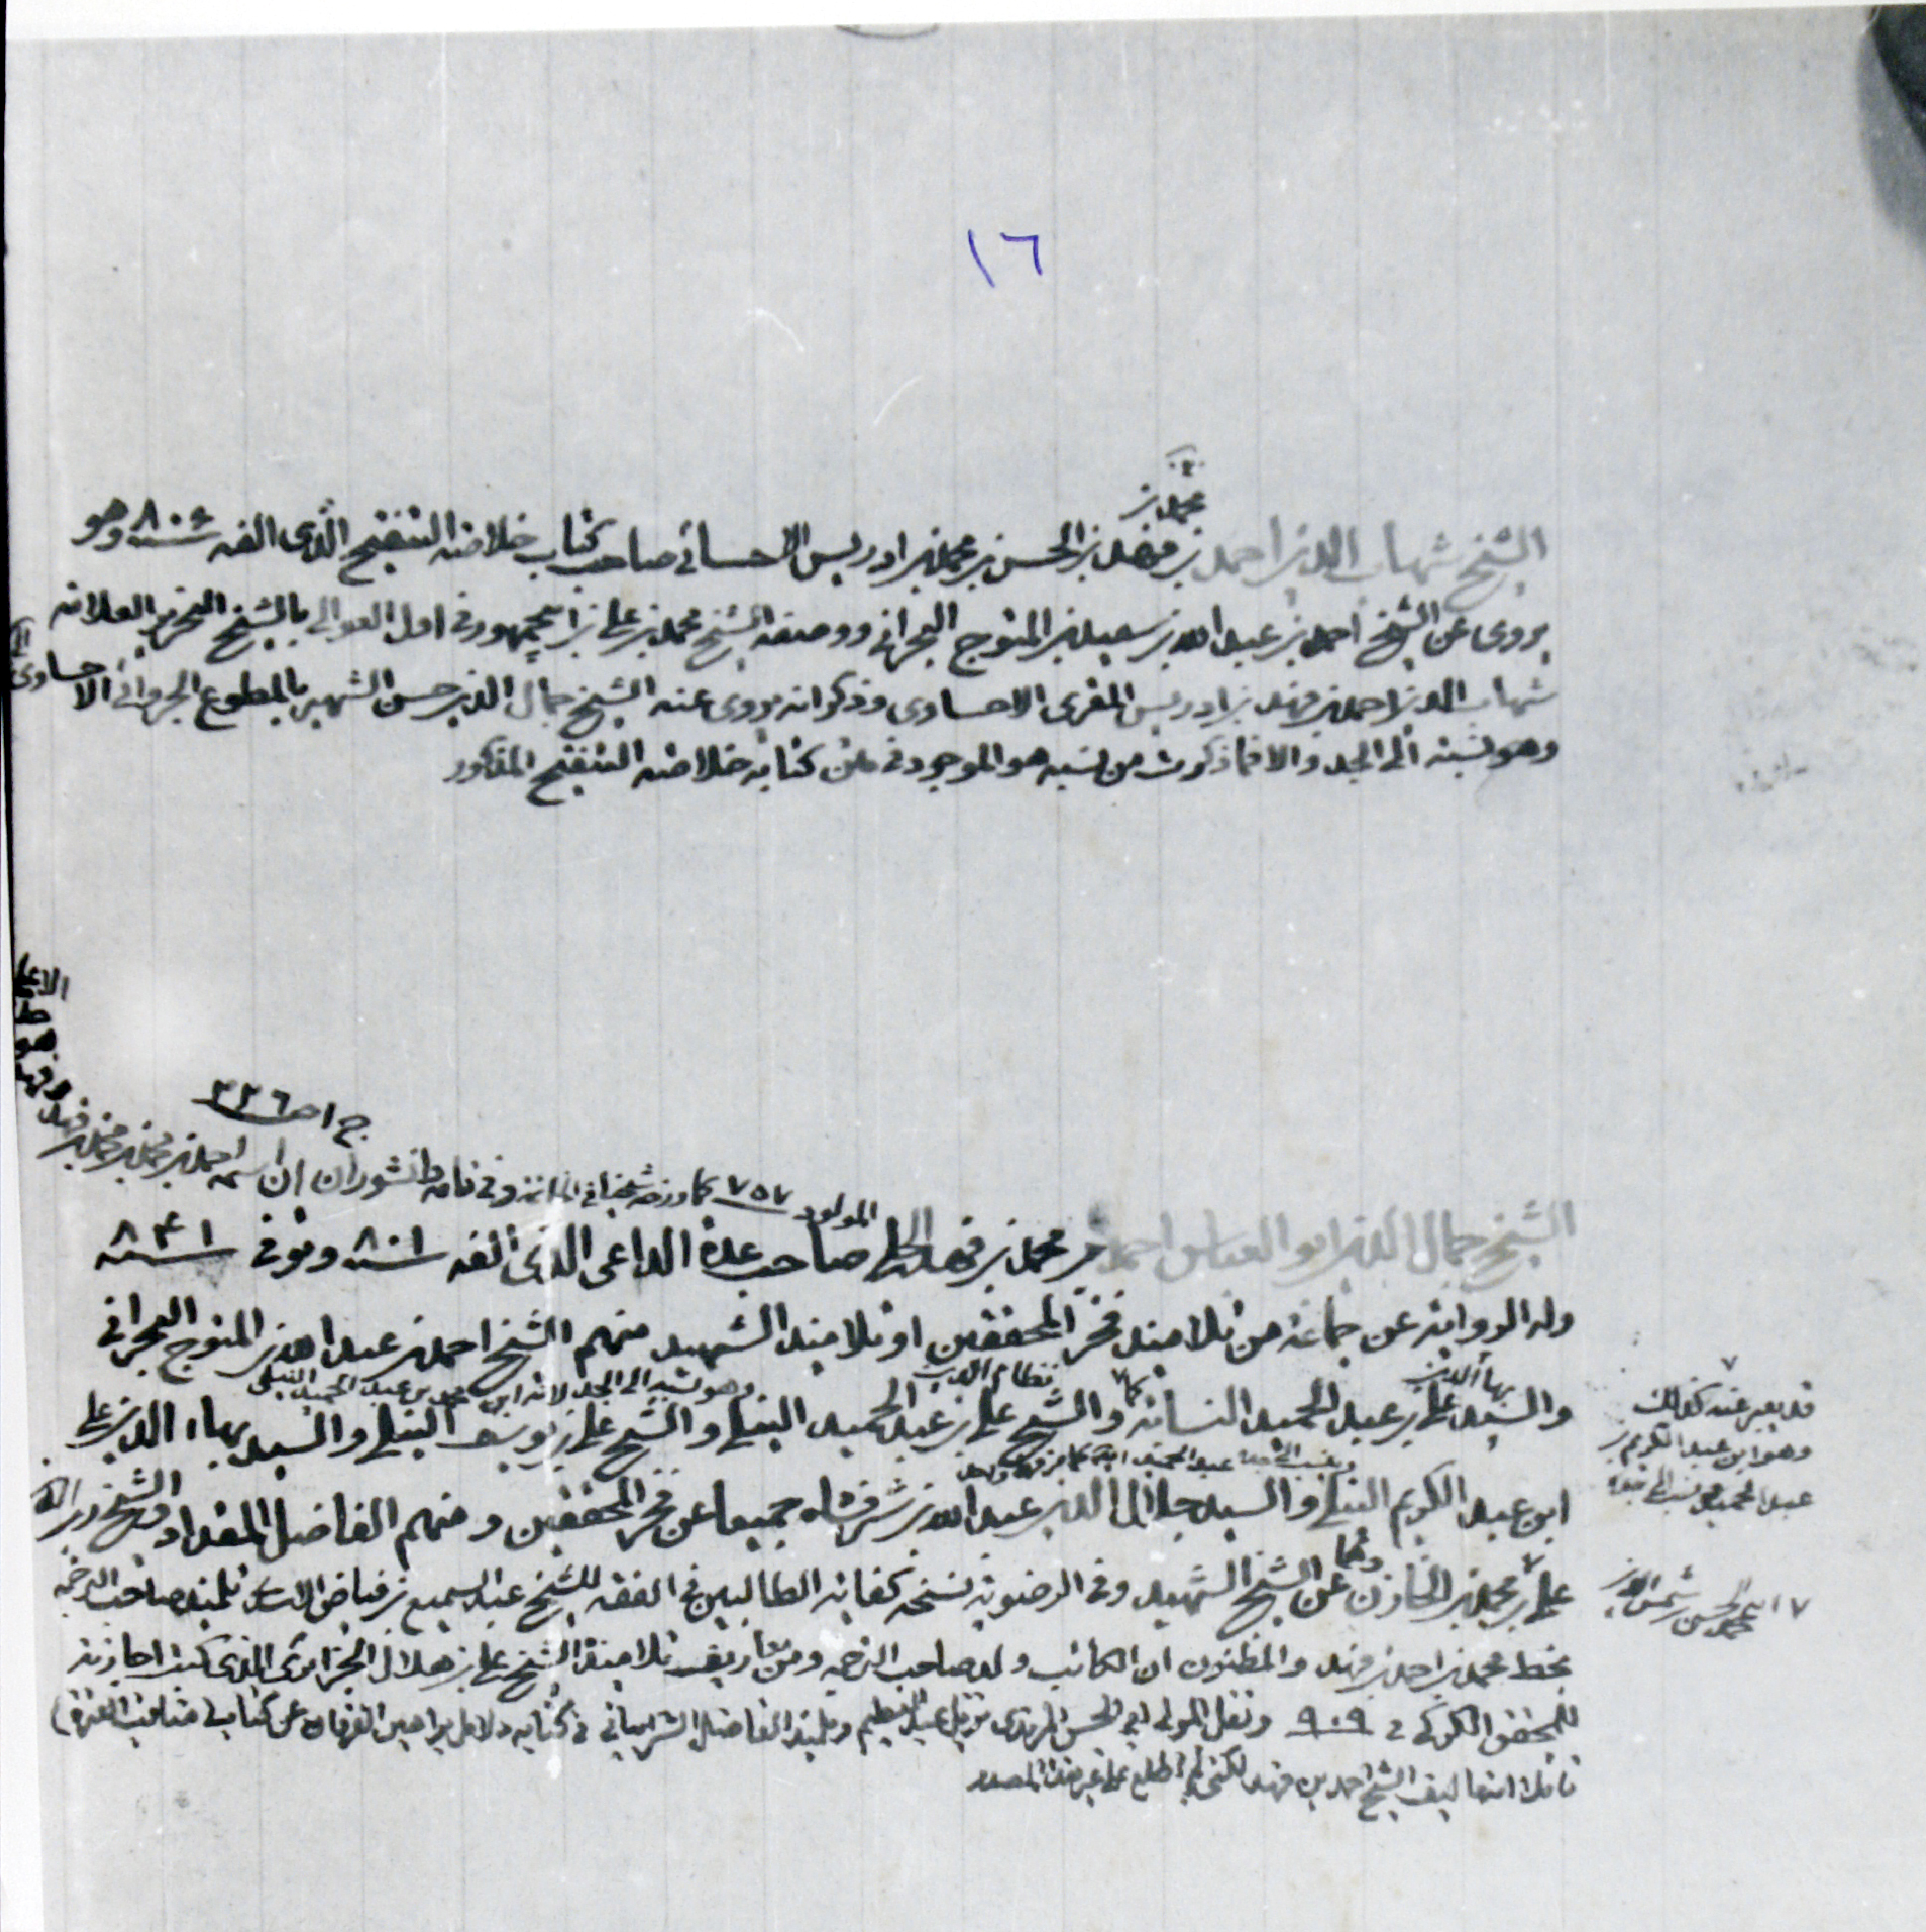 ١٦
محمد بن
الشيخ شهاب الدين احمد بن فهد بن الحسن بن محمد بن ادريس الاحسائي صاحب كتاب خلاصة التنقيح الذي الفه ٨٠٦ وهو
يروى عن الشيخ احمد بن عبد الله بن سعيد بن المتوج البحراني ووصفه الشيخ محمد بن علي بن ابي جمهور في اول العوالي بالشيخ النحرير العلامة
شهاب الدين احمد بن فهد بن ادريس المقرى الاحساوى وذكر انه يروى عنه الشيخ جمال الدين حسن الشهير بالمطوع الجرواني الاحساوى
وهو نسبة الى الجد والا فما ذكرت من نسبه هو الموجود في متن كتابه خلاصة التنقيح المذكور
ج ١ ص ٣٣٦
المولود ٧٥٧ كما ورخه شيخنا في الخاتمة وفي نامه دانشوران ان اسمه احمد بن محمد بن محمد بن فهد
الشيخ جمال الدين ابو العباس احمد بن محمد بن فهد الحلي صاحب عدة الداعى الذي الفه ٨٠١ وتوفى ٨٤١
وله الرواية عن جماعة من تلاميذ فخر المحققين او تلاميذ الشهيد منهم الشيخ احمد بن عبد الله بن المتوج البحراني
بهاء الدين
نظام الدين
وهو نسبة الى الجد لانه ابن محمد بن عبد الحميد النيلي
والسيد علي بن عبد الحميد النسابة والشيخ علي بن عبد الحميد النيلي والشيخ علي بن يوسف النيلي والسيد بهاء الدين علي
ابن عبد الكريم النيلي والسيد جلال الدين عبد الله بن شرفشاه جميعا عن فخر المحققين ومنهم الفاضل المقداد والشيخ زين الدين
علي بن محمد بن الخازن وهما عن الشيخ الشهيد وفي الرضوية نسخة كفاية الطالبين في الفقه للشيخ عبد السميع بن فياض الاسدى تلميذ صاحب الترجمة
بخط محمد بن احمد بن فهد والمظنون ان الكاتب ولد صاحب الترجمة ومن معاريف تلاميذه الشيخ علي بن هلال الجزائرى الذي كتب اجازته
للمحقق الكركي في ٩٠٩ ونقل المولى ابي الحسن المرندى نزيل عبد العظيم وتلميذ الفاضل الشرابياني في كتابه دلائل براهين الفرقان عن كتاب في مناقب العترة
ناقلا انه تاليف الشيخ احمد بن فهد لكني لم اطلع على غير هذا المصدر
قد يعبر عنه كذلك
وهو ابن عبد الكريم بن
عبد الحميد